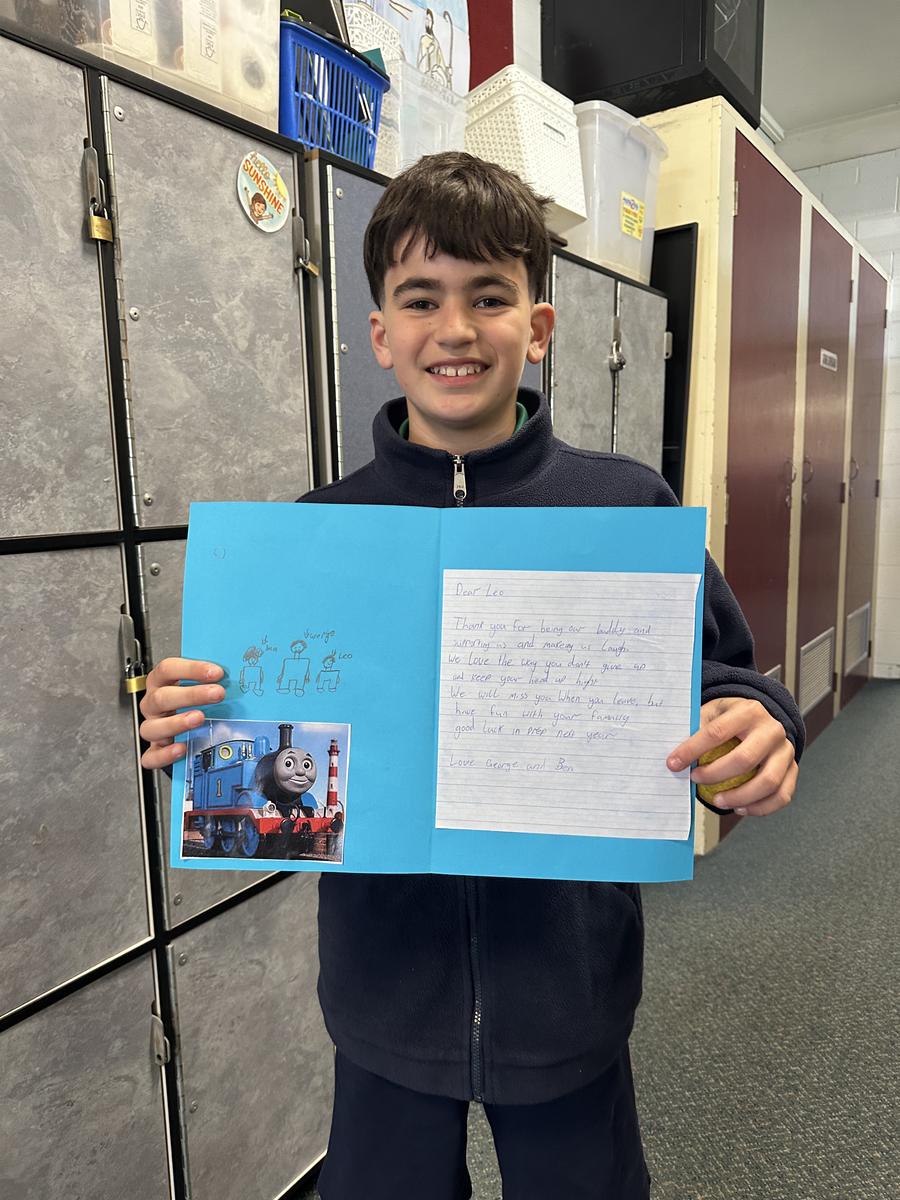 hello
SUNSHINE
Ben
George
LEO
1
Dear Leo
Thank you for being our buddy and
supporting us and making us laugh.
We love the way you don't give up
an keep your head up high.
We will miss you when you leave, but
have fun with your family
good luck in prep next year
Love George and Ben